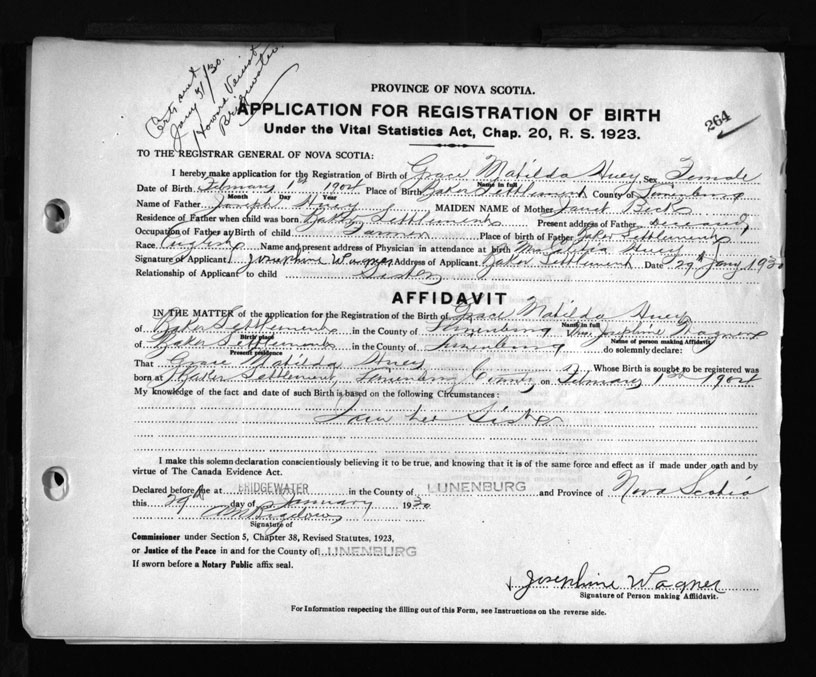 Cert. sent
Jany 31/30.
Howne Veinot
Bridgewater
PROVINCE OF NOVA SCOTIA.
APPLICATION FOR REGISTRATION OF BIRTH
264
Under the Vital Statistics Act, Chap. 20, R. S. 1923.
TO THE REGISTRAR GENERAL OF NOVA SCOTIA:
I hereby make application for the Registration of Birth of Grace Matilda Huey Sex Female
Name in full
Date of Birth February 1st 1904 Place of Birth Baker Settlement County of Lunenburg
Month Day Year
Name of Father Joseph Huey MAIDEN NAME of Mother Beck
Residence of Father when child was born Baker Settlement Present address of Father deceased
Occupation of Father at Birth of child Farmer Place of Birth of Father Baker Settlement
Race English Name and present address of Physician in attendance at birth Mrs
Signature of Applicant Josephine Wagner Address of Applicant Baker Settlement Date 29th Jany 1930
Relationship of Applicant to child Sister
AFFIDAVIT
IN THE MATTER of the application for the Registration of the Birth of Grace Matilda Huey
Name in full
of Baker Settlement in the County of Lunenburg Mrs Josephine Wagner
Birth place Name of person making Affidavit
of Baker Settlement in the County of Lunenburg do solemnly declare:
Present residence
That Grace Matilda Huey Whose Birth is sought to be registered was
born at Baker Settlement, Lunenburg County on February 1st 1904
My knowledge of the fact and date of such Birth is based on the following Circumstances:
I am her Sister
I make this solemn declaration conscientiously believing it to be true, and knowing that it is of the same force and effect as if made under oath and by
virtue of The Canada Evidence Act.
Declared before me at BRIDGEWATER in the County of LUNENBURG and Province of Nova Scotia
this 29th day of January 1930
Signature of
Commissioner under Section 5, Chapter 38, Revised Statutes, 1923,
or Justice of the Peace in and for the County of LUNENBURG
If sworn before a Notary Public affix seal.
Josephine Wagner
Signature of Person making Affidavit.
For Information respecting the filling out of this Form, see Instructions on the reverse side.